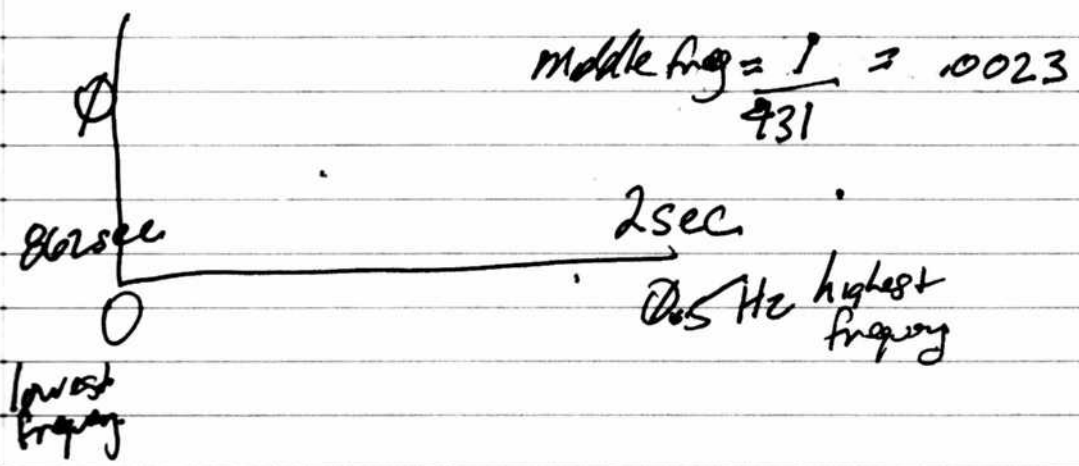 middle freq = 1/431 = .0023
Φ
862 sec
2 sec
0
0.5 Hz highest
frequency
lowest
frequency